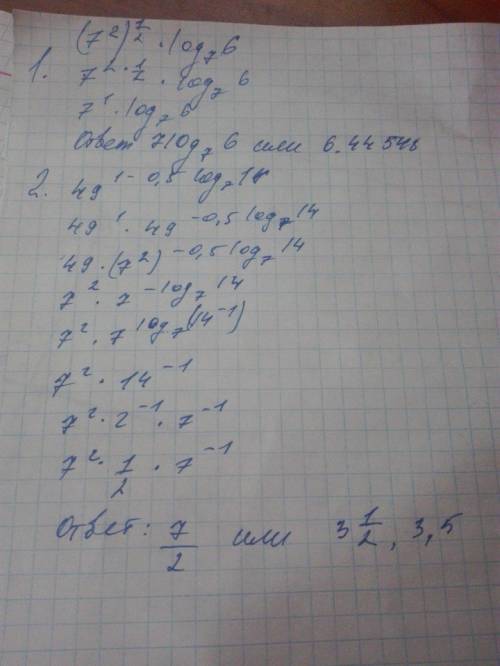 (7²)^½ · log₇6
1. 7^(2·½) · log₇ 6
7¹ · log₇ 6
Ответ 7log₇ 6 или 6.44548
2. 49^(1-0,5 log₇14)
49¹ · 49^(-0,5 log₇14)
49 · (7²)^(-0,5 log₇14)
7² · 7^(-log₇ 14)
7² · 7^(log₇(14⁻¹))
7² · 14⁻¹
7² · 2⁻¹ · 7⁻¹
7² · 1/2 · 7⁻¹
Ответ: 7/2 или 3 1/2, 3,5